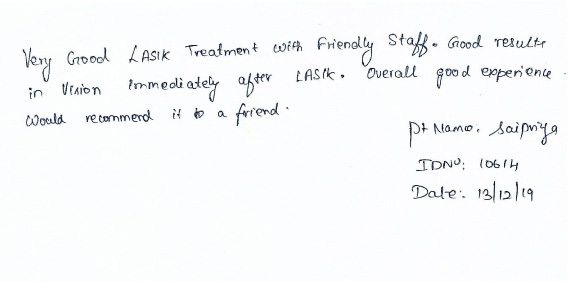 Very Good LASIK Treatment with Friendly Staff. Good results
in Vision immediately after LASIK. Overall good experience.
Would recommend it to a friend.
Pt Name: Saipriya
IDNO: 10614
Date: 13/12/19